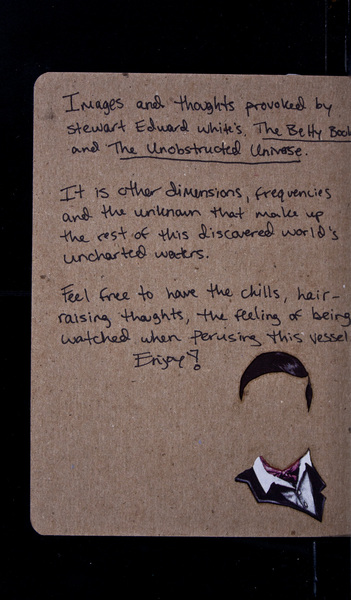 Images and thoughts provoked by
stewart Eduard white's, The Betty Book
and The Unobstructed Universe.
It is other dimensions, frequencies
and the unknown that make up
the rest of this discovered world's
uncharted waters.
Feel free to have the chills, hair-
raising thoughts, the feeling of being
watched when perusing this vessel.
Enjoy!